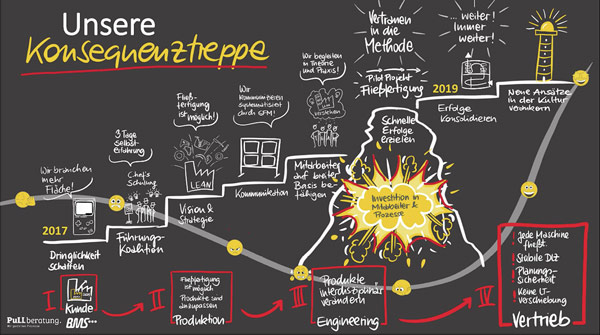 Unsere
Konsequenztreppe
Vertrauen
in die
Methode
... weiter!
Immer
weiter!
Wir begleiten
in Theorie
und Praxis!
Pilot Projekt
Fließfertigung
2019
Neue Ansätze
in der Kultur
verankern
Erfolge
Konsolidieren
Schnelle
Erfolge
erzielen
Fließ-
fertigung
ist möglich!
Wir
kommunizieren
systematisiert
durch SFM!
verstehen
3 Tage
Selbst-
erfahrung
LEAN
Mitarbeiter
auf breiter
Basis be-
fähigen
Wir brauchen
mehr
Fläche!
Chefs
Schulung
Kommunikation
Vision &
Strategie
Investition in
Mitarbeiter &
Prozesse
2017
Führungs-
Koalition
Dringlichkeit
schaffen
I
Kunde
BMS...
II
Fließfertigung
ist möglich
Produkte sind
anzupassen
Produktion
III
Produkte
Interdisziplinär
verändern
Engineering
IV
! Jede Maschine
fließt.
! Stabile DLZ
! Planungs-
sicherheit
! Keine LT-
Verschiebung
Vertrieb
PuLL beratung.